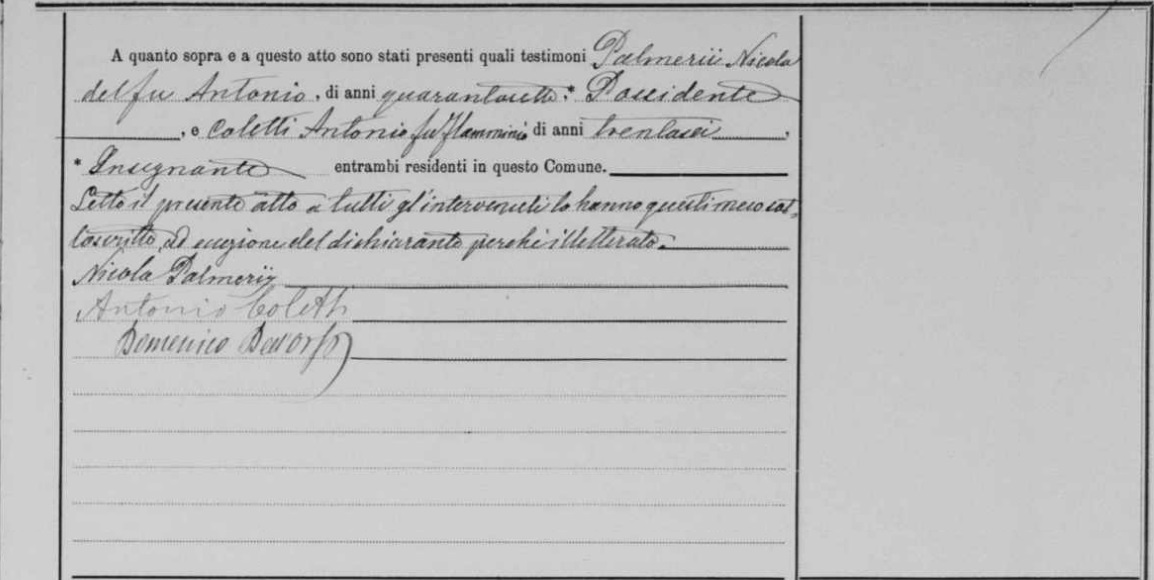 A quanto sopra e a questo atto sono stati presenti quali testimoni Palmerii Nicola
del fu Antonio, di anni quarantasette,* Possidente
, e Coletti Antonio fu Flamminio di anni trentasei,
* Insegnante entrambi residenti in questo Comune.
Letto il presente atto a tutti gl'intervenuti lo hanno questi meco sot-
toscritto, ad eccezione del dichiarante perchè illetterato.
Nicola Palmerij
Antonio Coletti
Domenico Dell'Orso